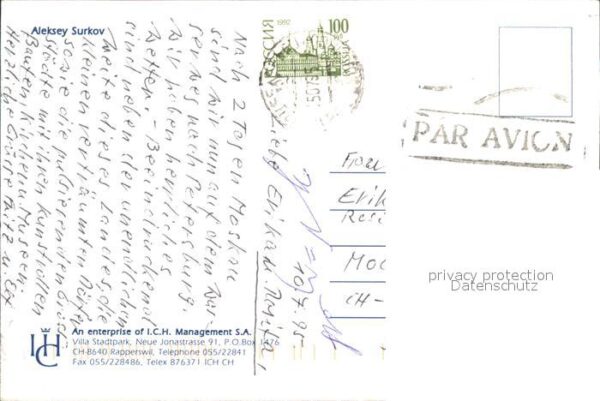 Aleksey Surkov
РОССИЯ
1992
100
PAR AVION
10.7.95
Liebe Erika u. Moritz,
Nach 2 Tagen Moskau
sind wir nun auf dem
nach Petersburg.
Wir haben herrliches
Wetter. - Beeindruckend
sind neben der unendlichen
Weite dieses Landes die
kleinen verträumten Dörfer
sowie die pulsierenden
städte mit ihren kunstvollen
Bauten, Kirchen u. Museen.
Herzliche Grüsse Fritz u.
Frau
Erika
CH-
privacy protection
Datenschutz
ICH
An enterprise of I.C.H. Management S.A.
Villa Stadtpark, Neue Jonastrasse 91, P.O.Box 1476
CH-8640 Rapperswil, Telephone 055/22841
Fax 055/228486, Telex 876371 ICH CH